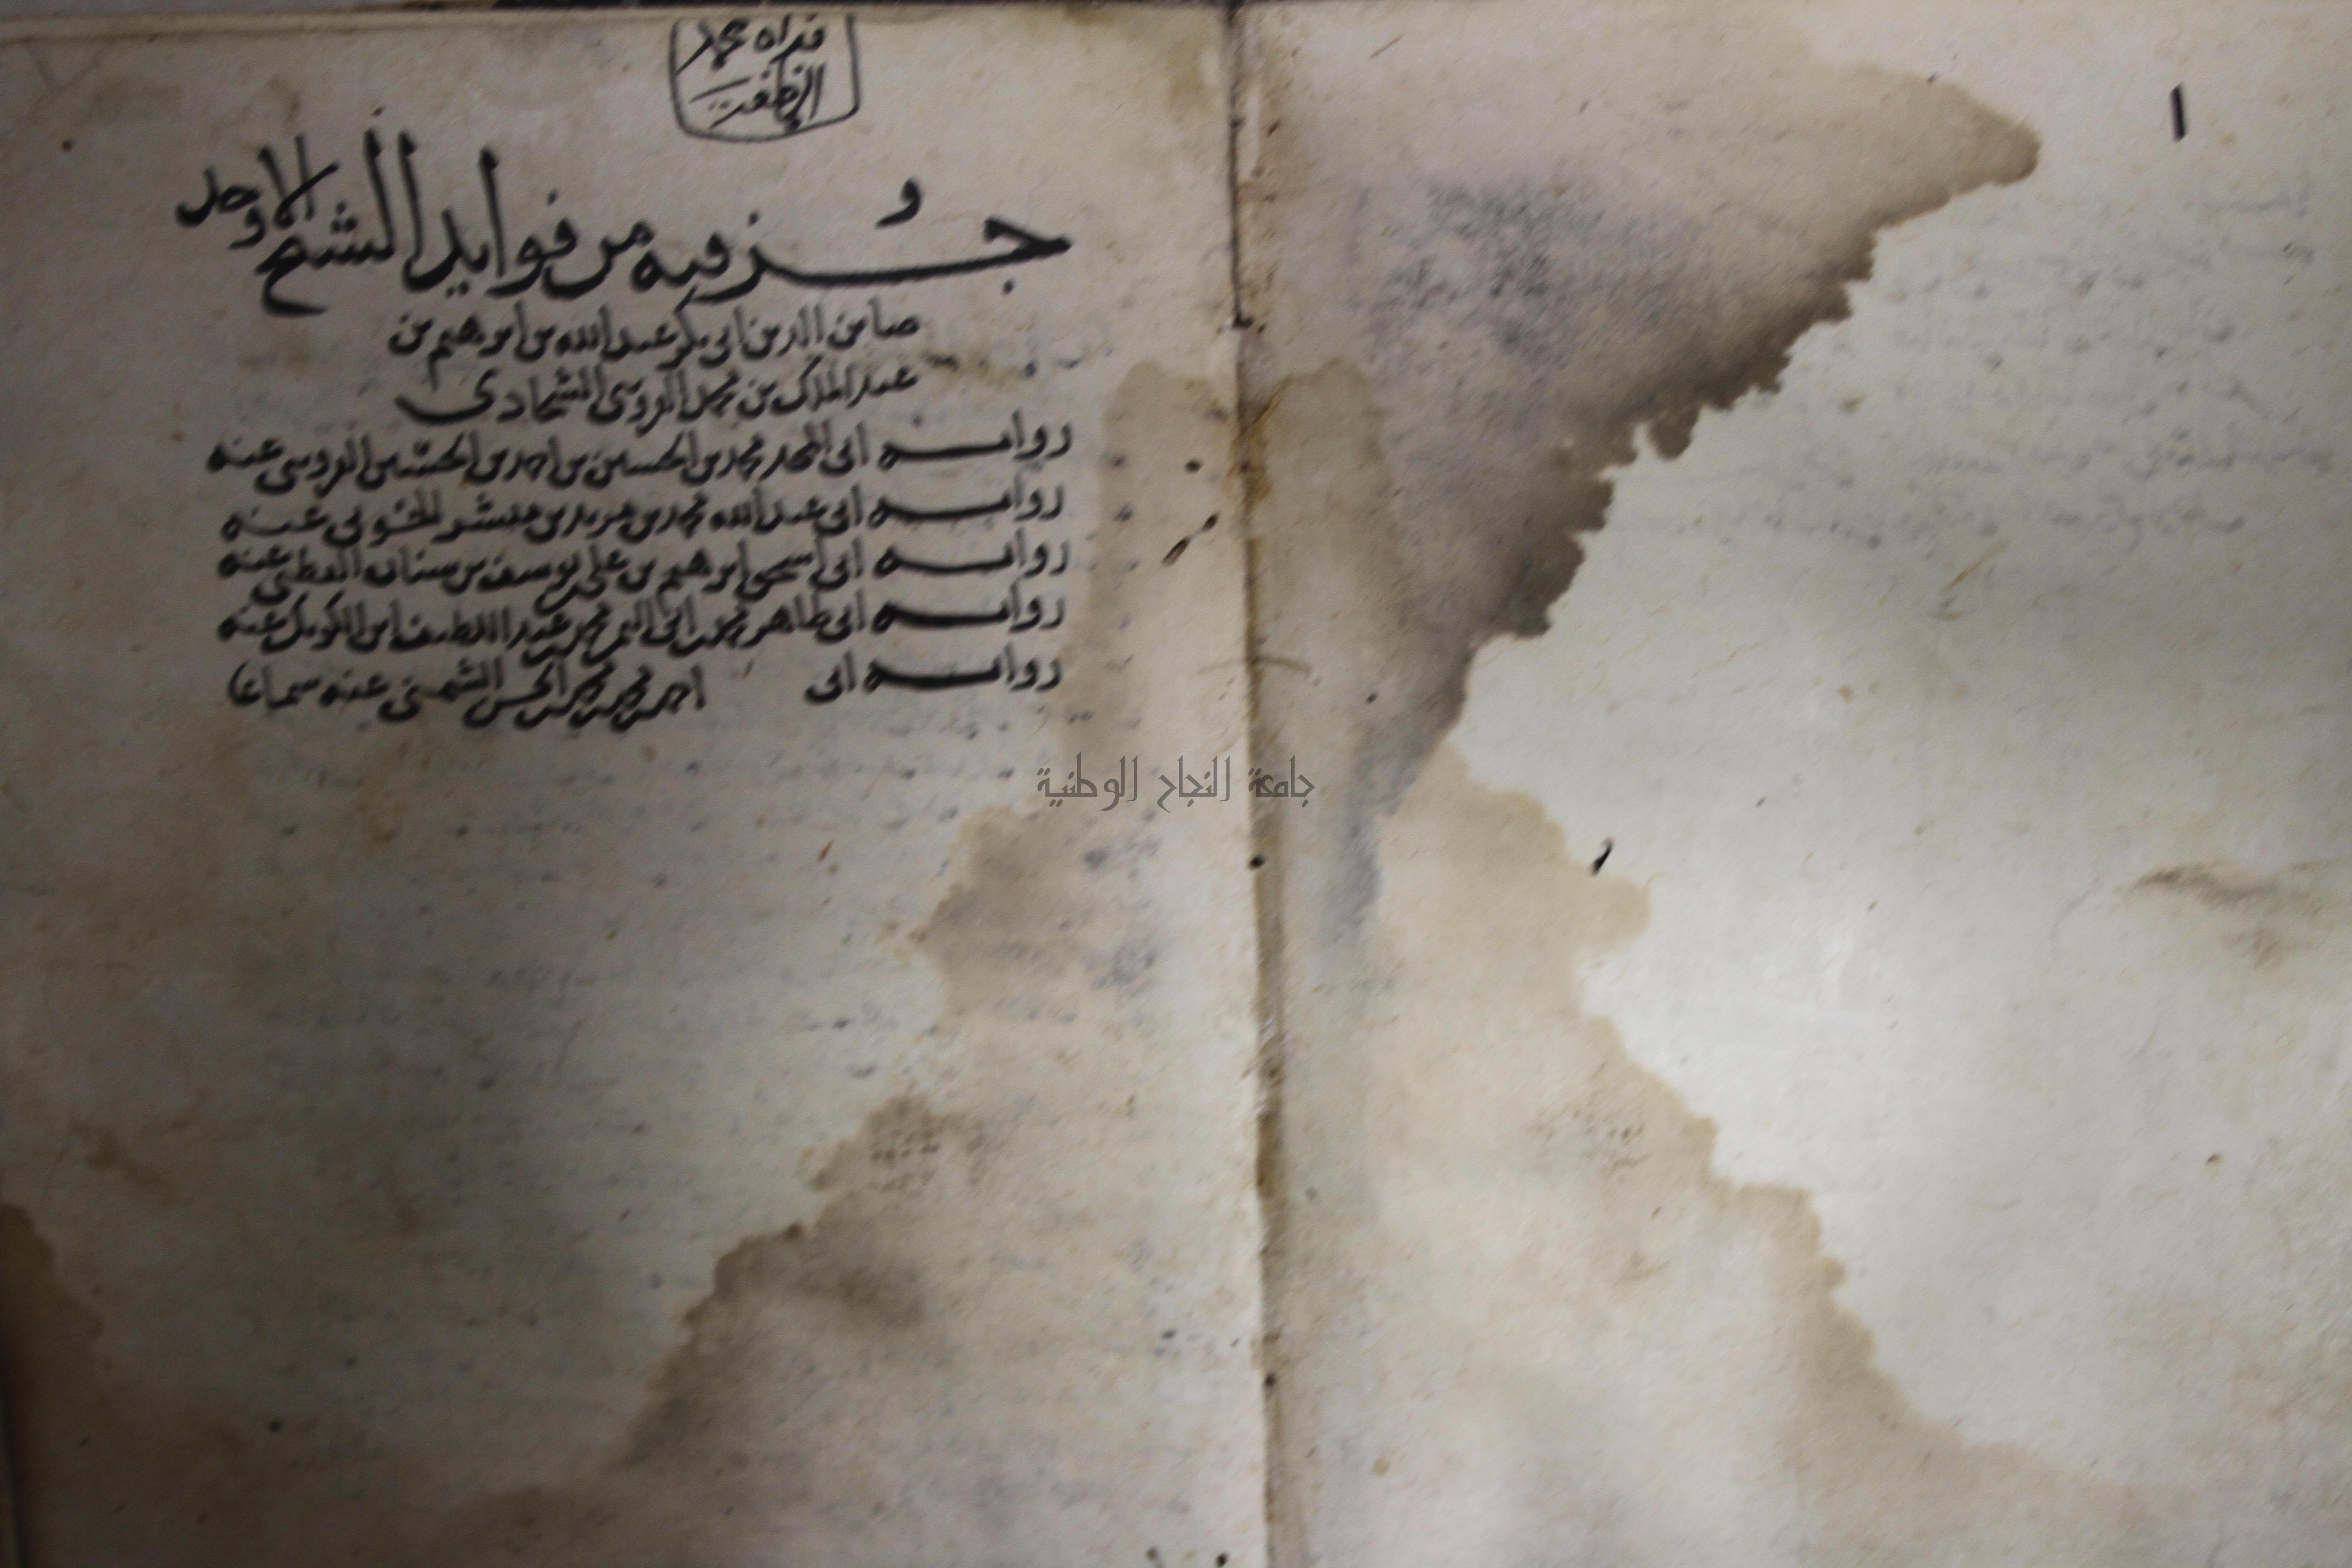 قراه محمد
جزو فيه من فوايد الشيخ الاوحد
صاين الدين ابي بكر عبد الله بن ابرهيم بن
عبد الملك بن محمد الشحادي
روايه ابي محمد بن الحسين بن احمد بن الحسين عنه
روايه ابي عبد الله محمد بن عنه
روايه ابي اسحق ابرهيم بن علي بن يوسف بن سنان عنه
روايه ابي طاهر محمد بن ابي اليمن محمد بن عبد اللطيف ابن الكويك عنه
روايه ابي احمد بن محمد بن محمد بن الحسن الشمني عنه سماعا
١
جامعة النجاح الوطنية